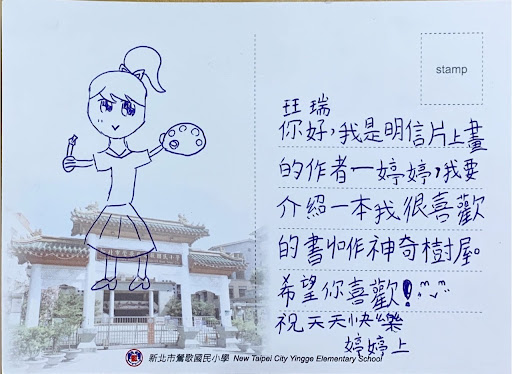 stamp
玨瑞
你好，我是明信片上畫
的作者—婷婷，我要
介紹一本我很喜歡
的書叫作神奇樹屋。
希望你喜歡！
祝天天快樂
婷婷上
新北市鶯歌國民小學 New Taipei City Yingge Elementary School